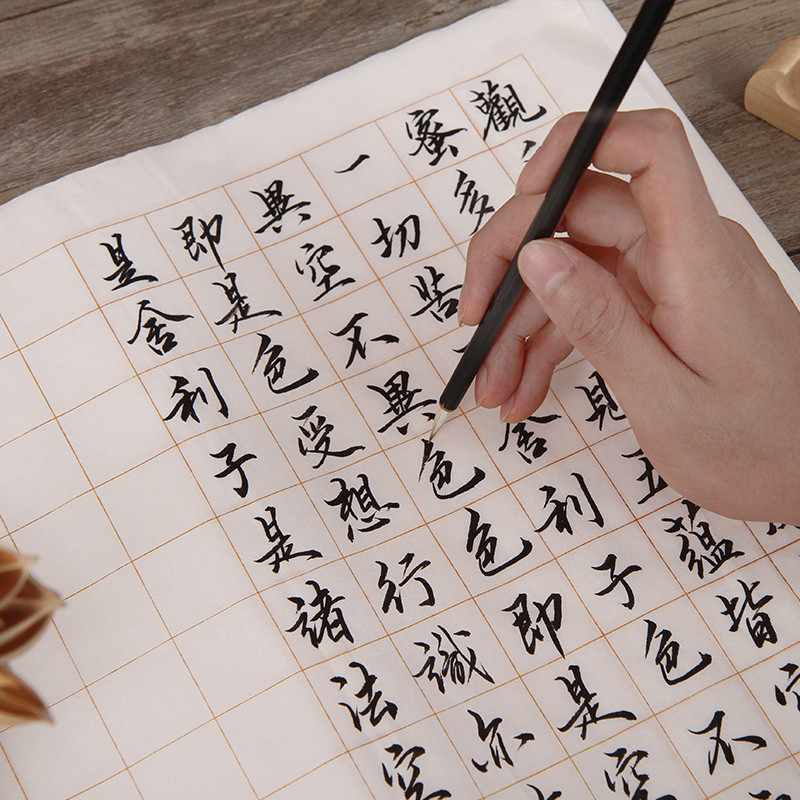 觀
蜜多見五蘊皆空
一切苦舍利子色不
異空不異色色即是空
即是色受想行識亦
是舍利子是諸法空